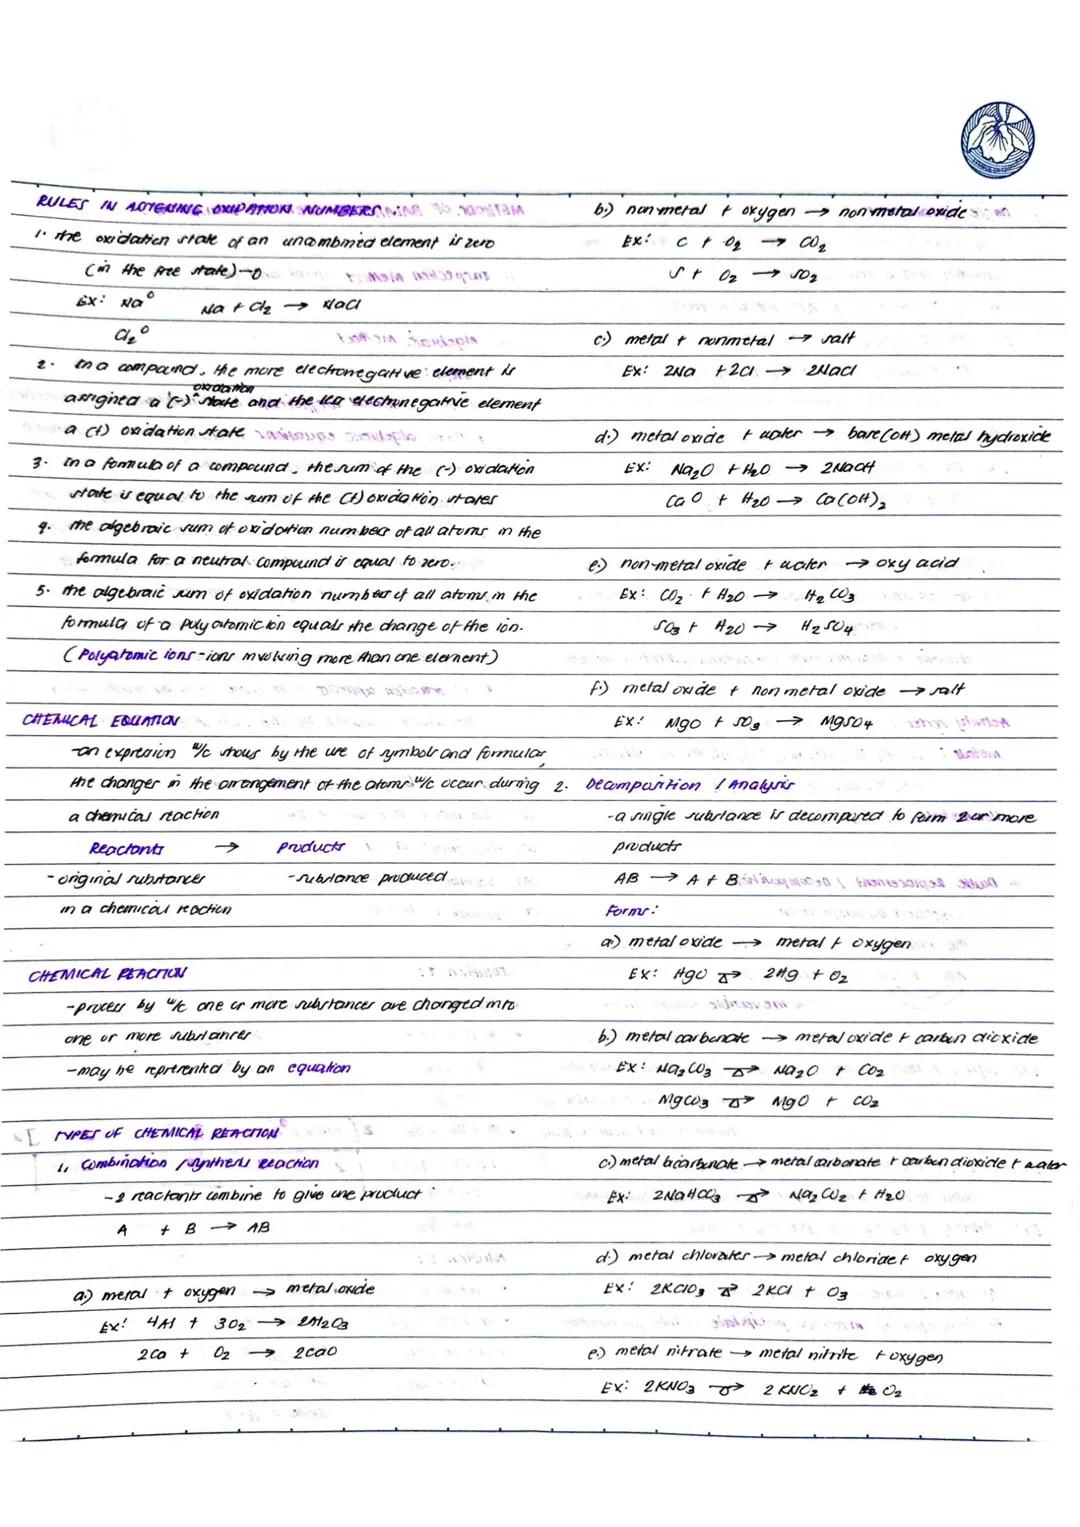 RULES IN ASSIGNING OXIDATION NUMBERS
1. the oxidation state of an uncombined element is zero
(in the free state) - 0
Ex: Na⁰ Na + Cl₂ → NaCl
Cl₂⁰
2. In a compound, the more electronegative element is
assigned a (-) oxidation state and the less electronegative element
a (+) oxidation state
3. In a formula of a compound, the sum of the (-) oxidation
state is equal to the sum of the (+) oxidation states
4. the algebraic sum of oxidation numbers of all atoms in the
formula for a neutral compound is equal to zero.
5. the algebraic sum of oxidation numbers of all atoms in the
formula of a polyatomic ion equals the change of the ion.
(Polyatomic ions - ions involving more than one element)
CHEMICAL EQUATION
-an expression w/c shows by the use of symbols and formulas,
the changes in the arrangement of the atoms w/c occur during
a chemical reaction
Reactants → Products
- original substances - substance produced
in a chemical reaction
CHEMICAL REACTION
-process by w/c one or more substances are changed into
one or more substances
-may be represented by an equation
TYPES OF CHEMICAL REACTION
1. Combination / synthesis reaction
-2 reactants combine to give one product
A + B → AB
a.) metal + oxygen → metal oxide
Ex: 4Al + 3O₂ → 2Al₂O₃
2Ca + O₂ → 2CaO
b.) nonmetal + oxygen → nonmetal oxide
Ex: C + O₂ → CO₂
S + O₂ → SO₂
c.) metal + nonmetal → salt
Ex: 2Na + 2Cl → 2NaCl
d.) metal oxide + water → base (OH) metal hydroxide
Ex: Na₂O + H₂O → 2NaOH
CaO + H₂O → Ca(OH)₂
e.) non-metal oxide + water → oxy acid
Ex: CO₂ + H₂O → H₂CO₃
SO₃ + H₂O → H₂SO₄
f.) metal oxide + non metal oxide → salt
Ex: MgO + SO₃ → MgSO₄
2. Decomposition / Analysis
-a single substance is decomposed to form 2 or more
products
AB → A + B
Forms:
a.) metal oxide → metal + oxygen
Ex: HgO → 2Hg + O₂
b.) metal carbonate → metal oxide + carbon dioxide
Ex: Na₂CO₃ → Na₂O + CO₂
MgCO₃ → MgO + CO₂
c.) metal bicarbonate → metal carbonate + carbon dioxide + water
Ex: 2NaHCO₃ → Na₂CO₂ + H₂O
d.) metal chlorates → metal chloride + oxygen
Ex: 2KClO₃ → 2KCl + O₃
e.) metal nitrate → metal nitrite + oxygen
Ex: 2KNO₃ → 2KNO₂ + O₂